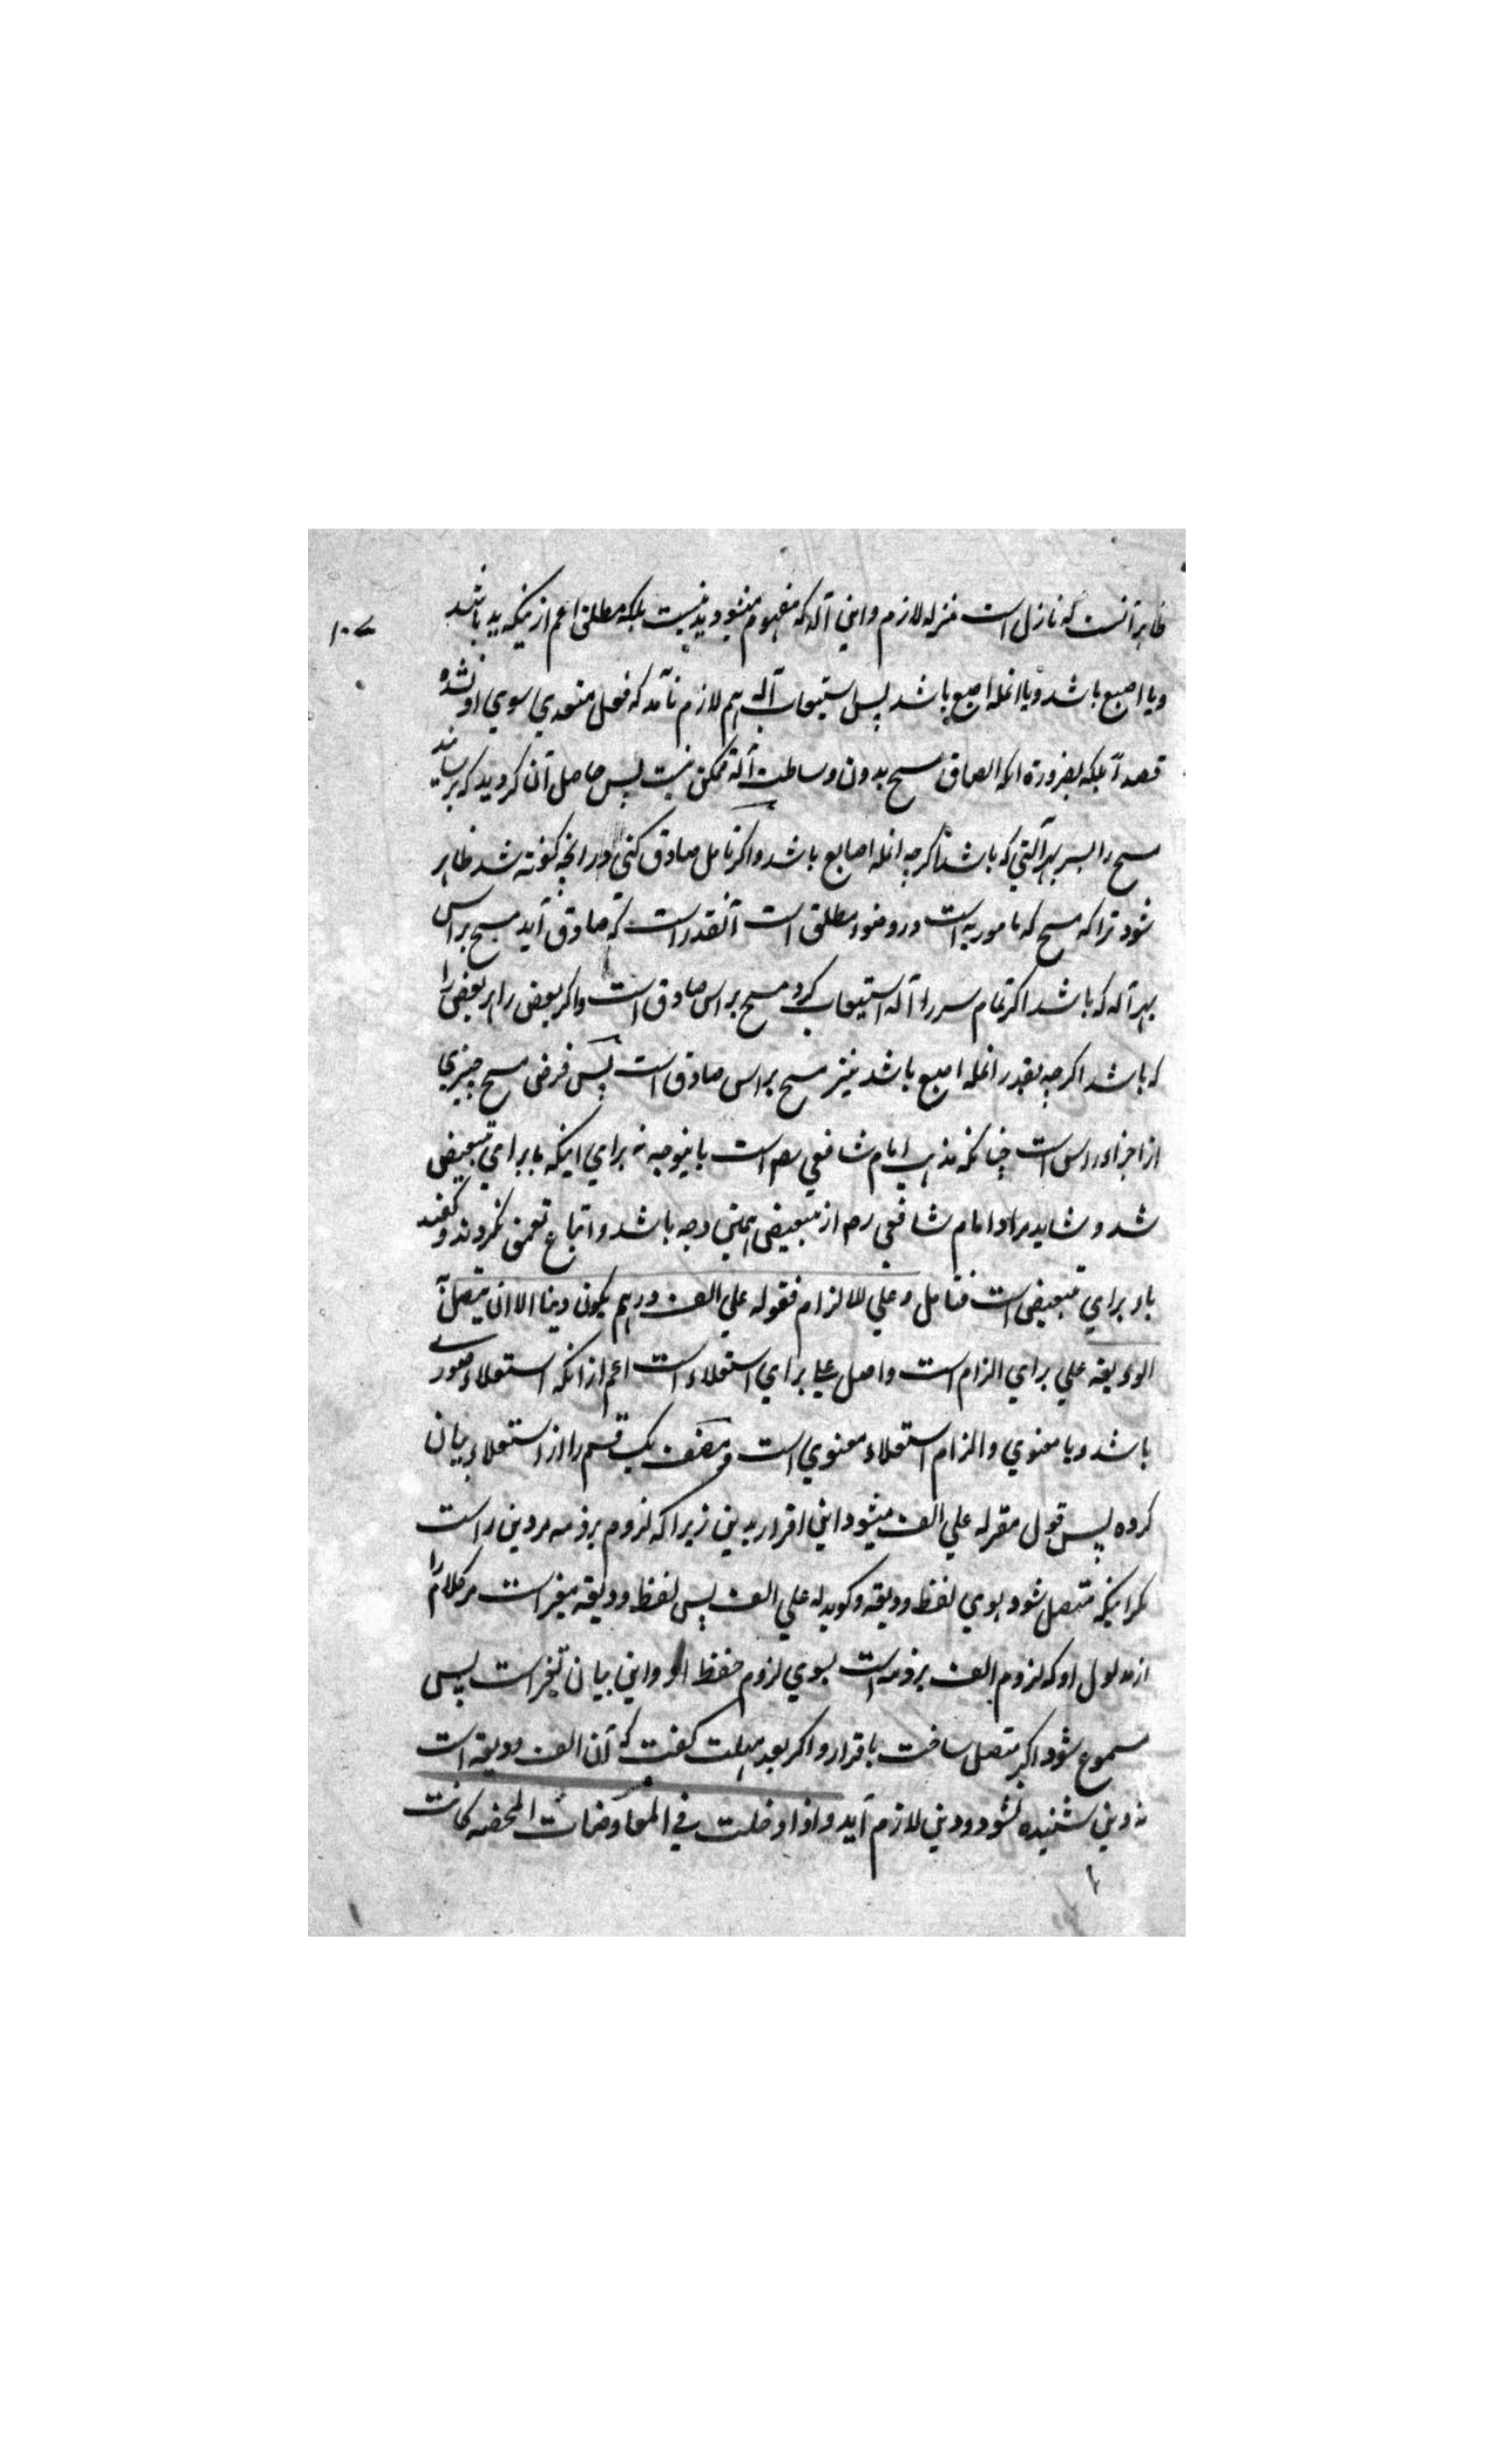 ظاهر آنست که نازل است منزله لازم و این آله که مفهوم میشود ید نیست بلکه مطلق اعم ازینکه ید باشد
۱۰۷
و یا اصبع باشد و یا انمله اصبع باشد پس استیعاب آله هم لازم نآمد که فعل متعدی سوی او نشده
قصداً بلکه بضرورة انکه الصاق مسح بدون وساطت آلة ممکن نیست پس حاصل آن کردید که برسانید
مسح را بسر بهر آلتی که باشد اکرچه انمله اصابع باشد و اکر تامل صادق کنی در انچه کفته شد ظاهر
شود ترا که مسح که مامور به است در وضوء مطلق است آنقدر است که صادق آید مسح براس
بهر آله که باشد اکر تمام سر را و آله استیعاب کرد مسح براس صادق است و اکر بعض را هر بعضی را
که باشد اکرچه بقدر انمله اصبع باشد نیز مسح براس صادق است پس فرض مسح چیزی
از اجزاء راس است چنانکه مذهب امام شافعی رح است باینوجه نه برای اینکه با برای تبعیض
شد و شاید مراد امام شافعی رح از تبعیض همین وجه باشد و اتباع تعمق نکردند و کفتند
باء برای تبعیض است فتامل وعلی للالزام فقوله علی الف درهم یکون دینا الا ان یتصل به
الودیعة علی برای الزام است و اصل علی برای استعلاء است اعم از انکه استعلاء صوری
باشد و یا معنوی و الزام استعلاء معنوی است و مصنف یک قسم را از استعلاء بیان
کرده پس قول مقر له علی الف میشود این اقرار بدین زیراکه لزوم بر ذمه مر دین راست
مکر اینکه متصل شود بوی لفظ ودیعة و کوید له علی الف پس لفظ ودیعة مغیر است مر کلام را
از مدلول او که لزوم الف بر ذمه است بسوی لزوم حفظ او و این بیان تغیر است پس
مسموع شود اکر متصل ساخت باقرار و اکر بعد مهلت کفت که آن الف ودیعة است
نه دین شنیده نشود و دین لازم آید و اذا دخلت في المعاوضات المحضه کانت